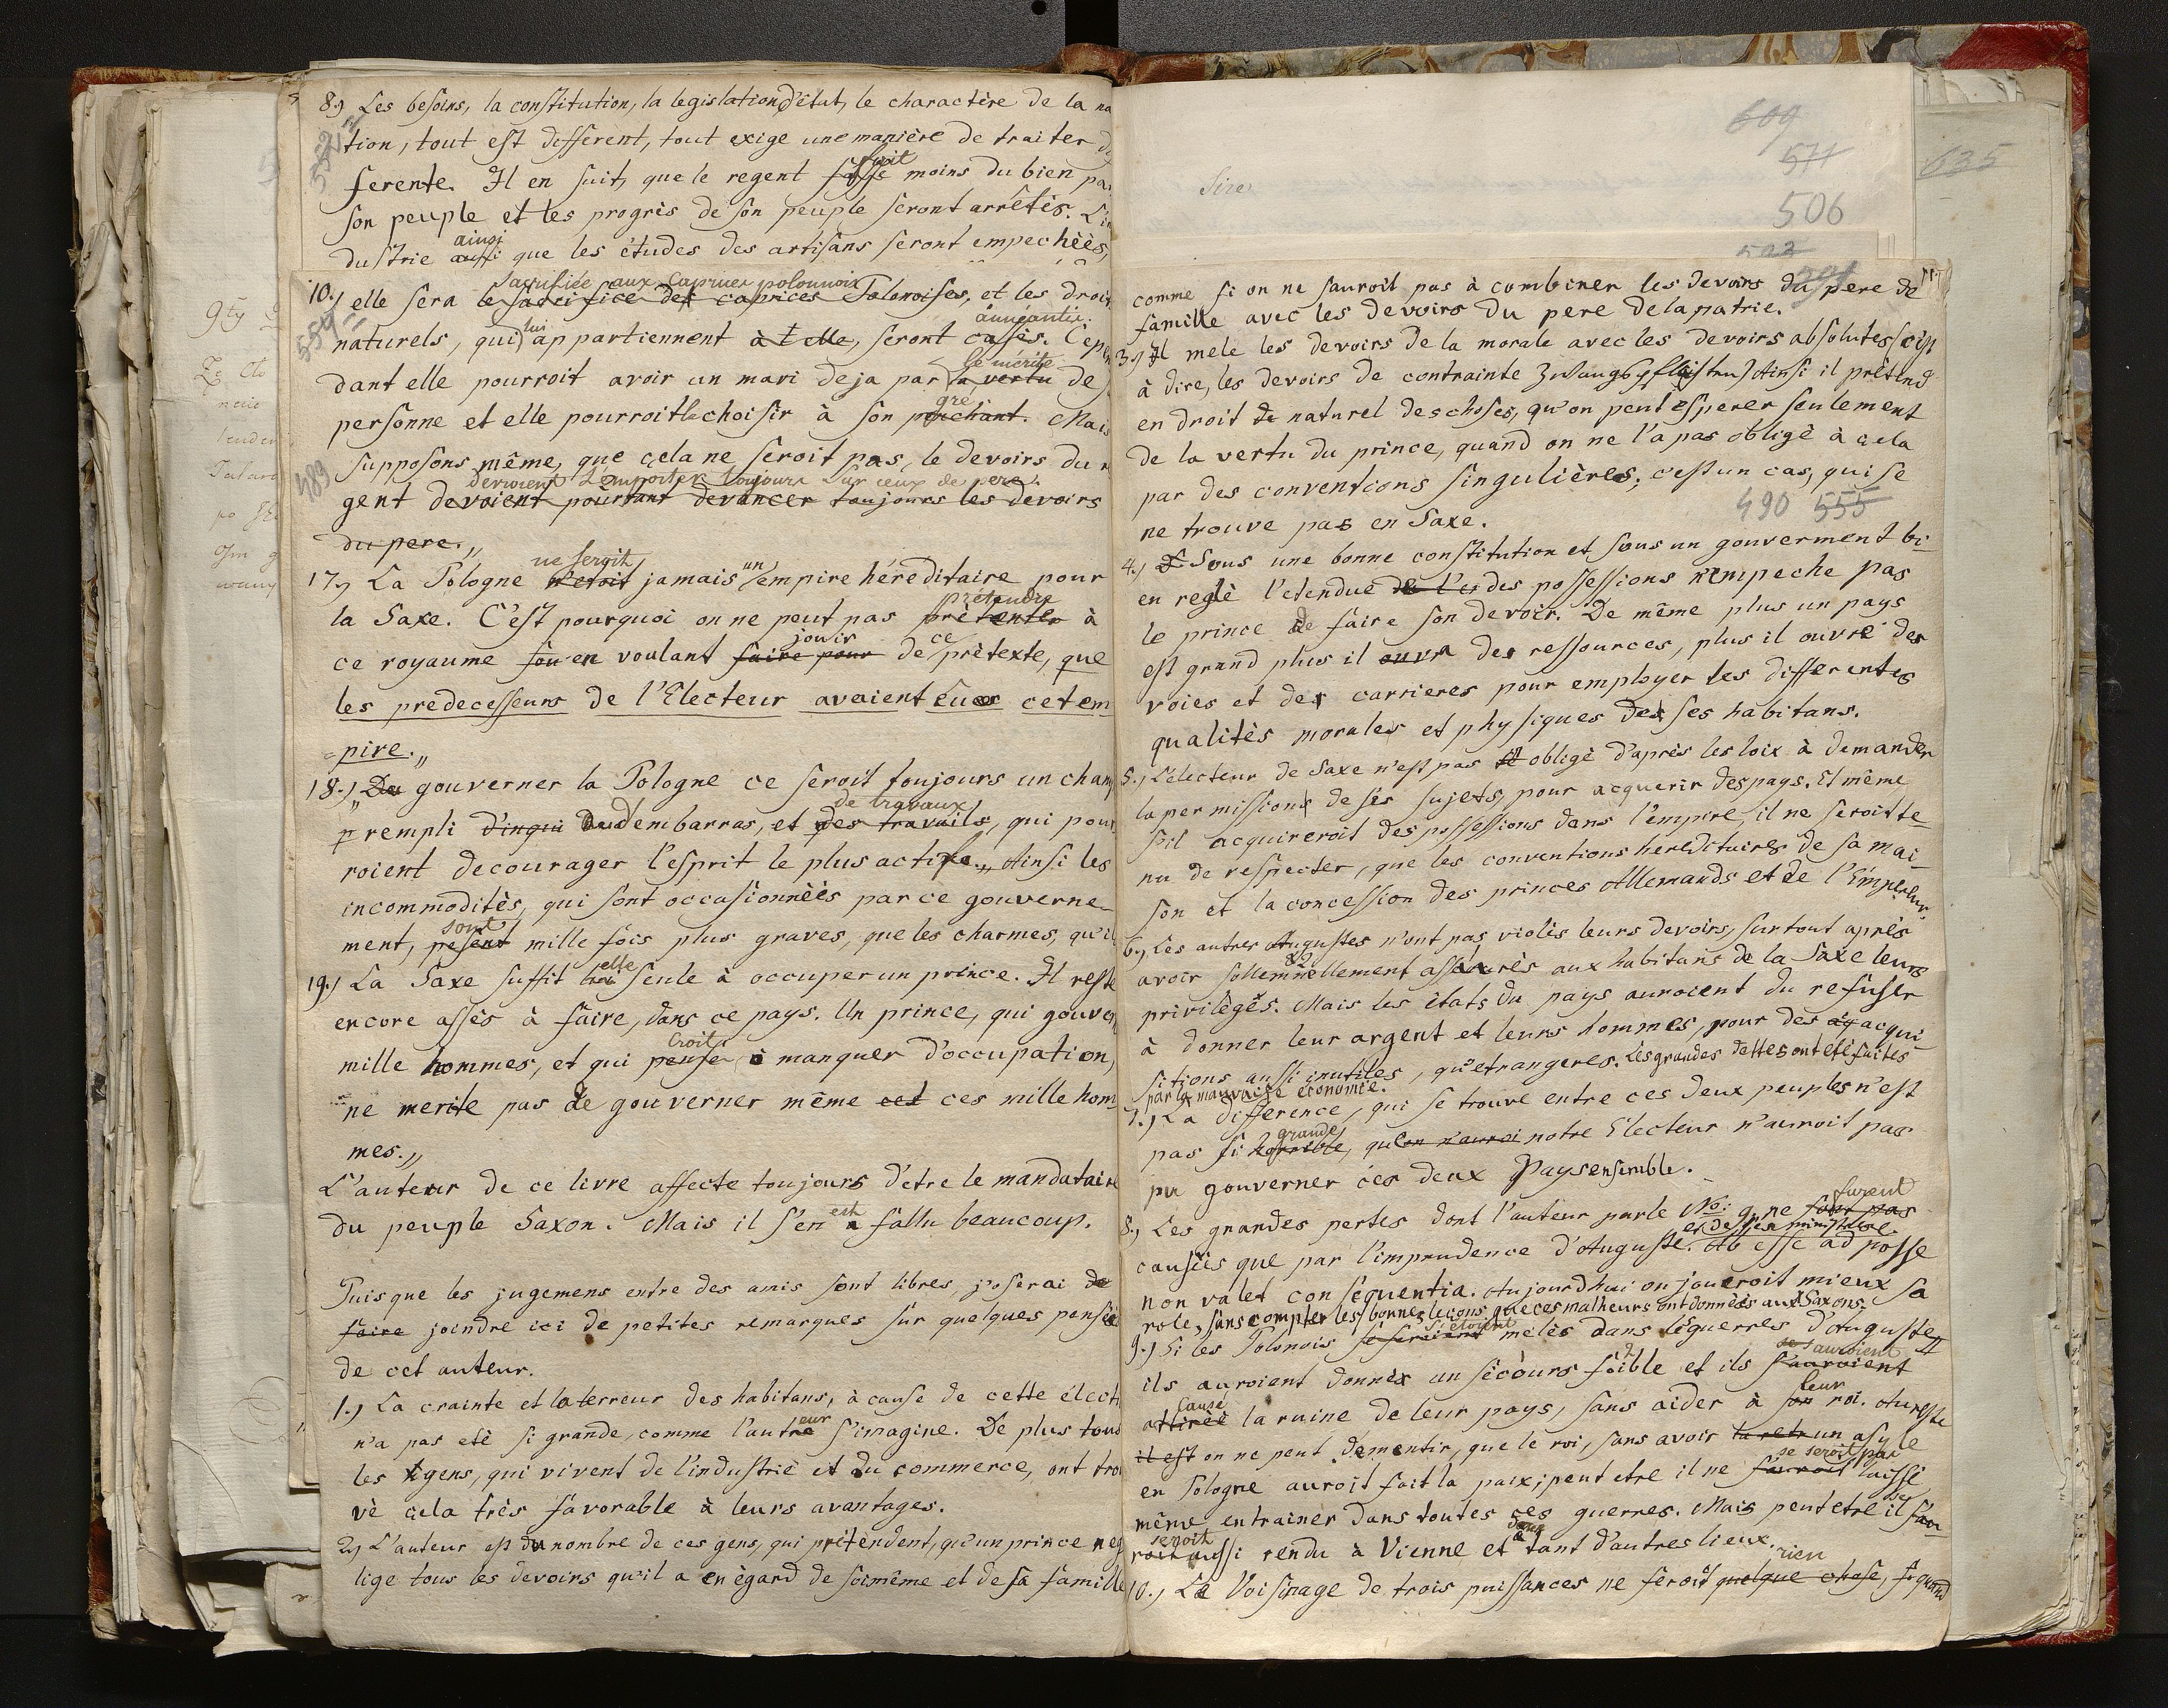 8.) Les besoins, la constitution, la legislation d'êtat, le charactère de la na
tion, tout est different, tout exige une manière de traiter di
ferente. Il en suit, que le regent fait moins du bien par
son peuple et les progrès de son peuple seront arrêtés. L'in
dustrie ainsi que les études des artisans seront empechèès,
10.) elle sera sacrifiée aux caprices polonnois, et les droits
554
naturels, qui lui appartiennent seront anneantis. Cepen
dant elle pourroit avoir un mari deja par le mérite de
personne et elle pourroit le choisir à son gré. Mais
489
supposons même, que cela ne seroit pas, le devoirs du re
gent devroient l'emporter toujours sur ceux de pere.
devoient pourtant devancer toujours les devoirs
du pere.„
17.) La Pologne ne seroit jamais un empire héréditaire pour
la Saxe. C'est pourquoi on ne peut pas prétendre à
ce royaume en voulant jouir de ce prètexte, que
les predecesseurs de l'Electeur avaient eus cet em
pire.„
18.) „De gouverner la Pologne ce seroit toujours un champ
rempli d'embarras, et de travaux, qui pour
roient decourager l'esprit le plus actife.„ Ainsi les
incommodités, qui sont occasionnèès par ce gouverne-
ment, sont mille fois plus graves, que les charmes, qu'il
19.) La Saxe suffit elle seule à occuper un prince. Il reste
encore assès à faire, dans ce pays. Un prince, qui gouver
mille hommes, et qui croit manquer d'occupation,
ne merite pas de gouverner même ces mille hom
mes.„
L'auteur de ce livre affecte toujours d'etre le mandataire
du peuple Saxon. Mais il s'en est fallu beaucoup.
Puisque les jugemens entre des amis sont libres, j'oserai de
faire joindre ici de petites remarques sur quelques pensée
de cet auteur.
1.) La crainte et la terreur des habitans, à cause de cette électi
n'a pas eté si grande, comme l'auteur s'imagine. De plus tous
les gens, qui vivent de l'industrie et du commerce, ont trou
vè cela très favorable à leurs avantages.
2.) L'auteur est du nombre de ces gens, qui prétendent, qu'un prince neg
lige tous les devoirs qu'il a en ègard de soimême et de sa famille
Sire
609
571
506
635
comme si on ne sauroit pas à combiner les devoirs du pere de
famille avec les devoirs du pere de la patrie.
3.) Il mele les devoirs de la morale avec les devoirs absolutes (c'est
à dire, les devoirs de contrainte Zwangspflichten) Ainsi il prètend
en droit naturel des choses, qu'on peut esperer seulement
de la vertu du prince, quand on ne l'a pas obligè à cela
par des conventions singulières; c'est un cas, qui se
ne trouve pas en Saxe.
490 555
4.) Sous une bonne constitution et sous un gouverment bi-
en reglè l'etendue des possessions n'empeche pas
le prince de faire son devoir. De même plus un pays
est grand plus il ouvre des ressources, plus il ouvre des
voies et des carrieres pour employer les differentes
qualitès morales et physiques des ses habitans.
5.) L'electeur de Saxe n'est pas obligè d'après les loix à demander
la permission de ses sujets, pour acquerir des pays. Et même
s'il acquireroit des possessions dans l'empire, il ne seroit te-
nu de respecter, que les conventions hereditaires de sa mai-
son et la concession des princes Allemands et de l'Empereur.
6.) Les autres Augustes n'ont pas violés leurs devoirs, surtout après
avoir sollemnellement assurès aux habitans de la Saxe leurs
privilèges. Mais les ètats du pays auroient du refuser
à donner leur argent et leurs hommes, pour des acqui-
sitions aussi inutiles, qu'etrangeres. Les grandes dettes ont etè faites
par la mauvaise économie.
7.) La difference, qui se trouve entre ces deux peuples n'est
pas si grande, que notre Electeur n'auroit pas
pu gouverner ces deux Pays ensemble.
8.) Les grandes pertes dont l'auteur parle No: 9. ne furent
causèes que par l'imprudence d'Auguste et de son ministere. Ab esse ad posse
non valet consequentia. Aujourdhui on joueroit mieux sa
role, sans compter les bonnes leçons que ces malheurs ont donnèès aux Saxons.
9.) Si les Polonois s'etoient melès dans les guerres d'Auguste II
ils auroient donnèx un secours foible et ils se sauroient
causé la ruine de leur pays, sans aider à leur roi. Au reste
on ne peut dementir, que le roi, sans avoir un asyle
en Pologne auroit fait la paix; peut etre il ne se seroit pas laissé
même entrainer dans toutes ces guerres. Mais peut etre il se
seroit aussi rendu à Vienne et dans tant d'autres lieux.
10.) Le Voisinage de trois puissances ne feroit rien, si quand